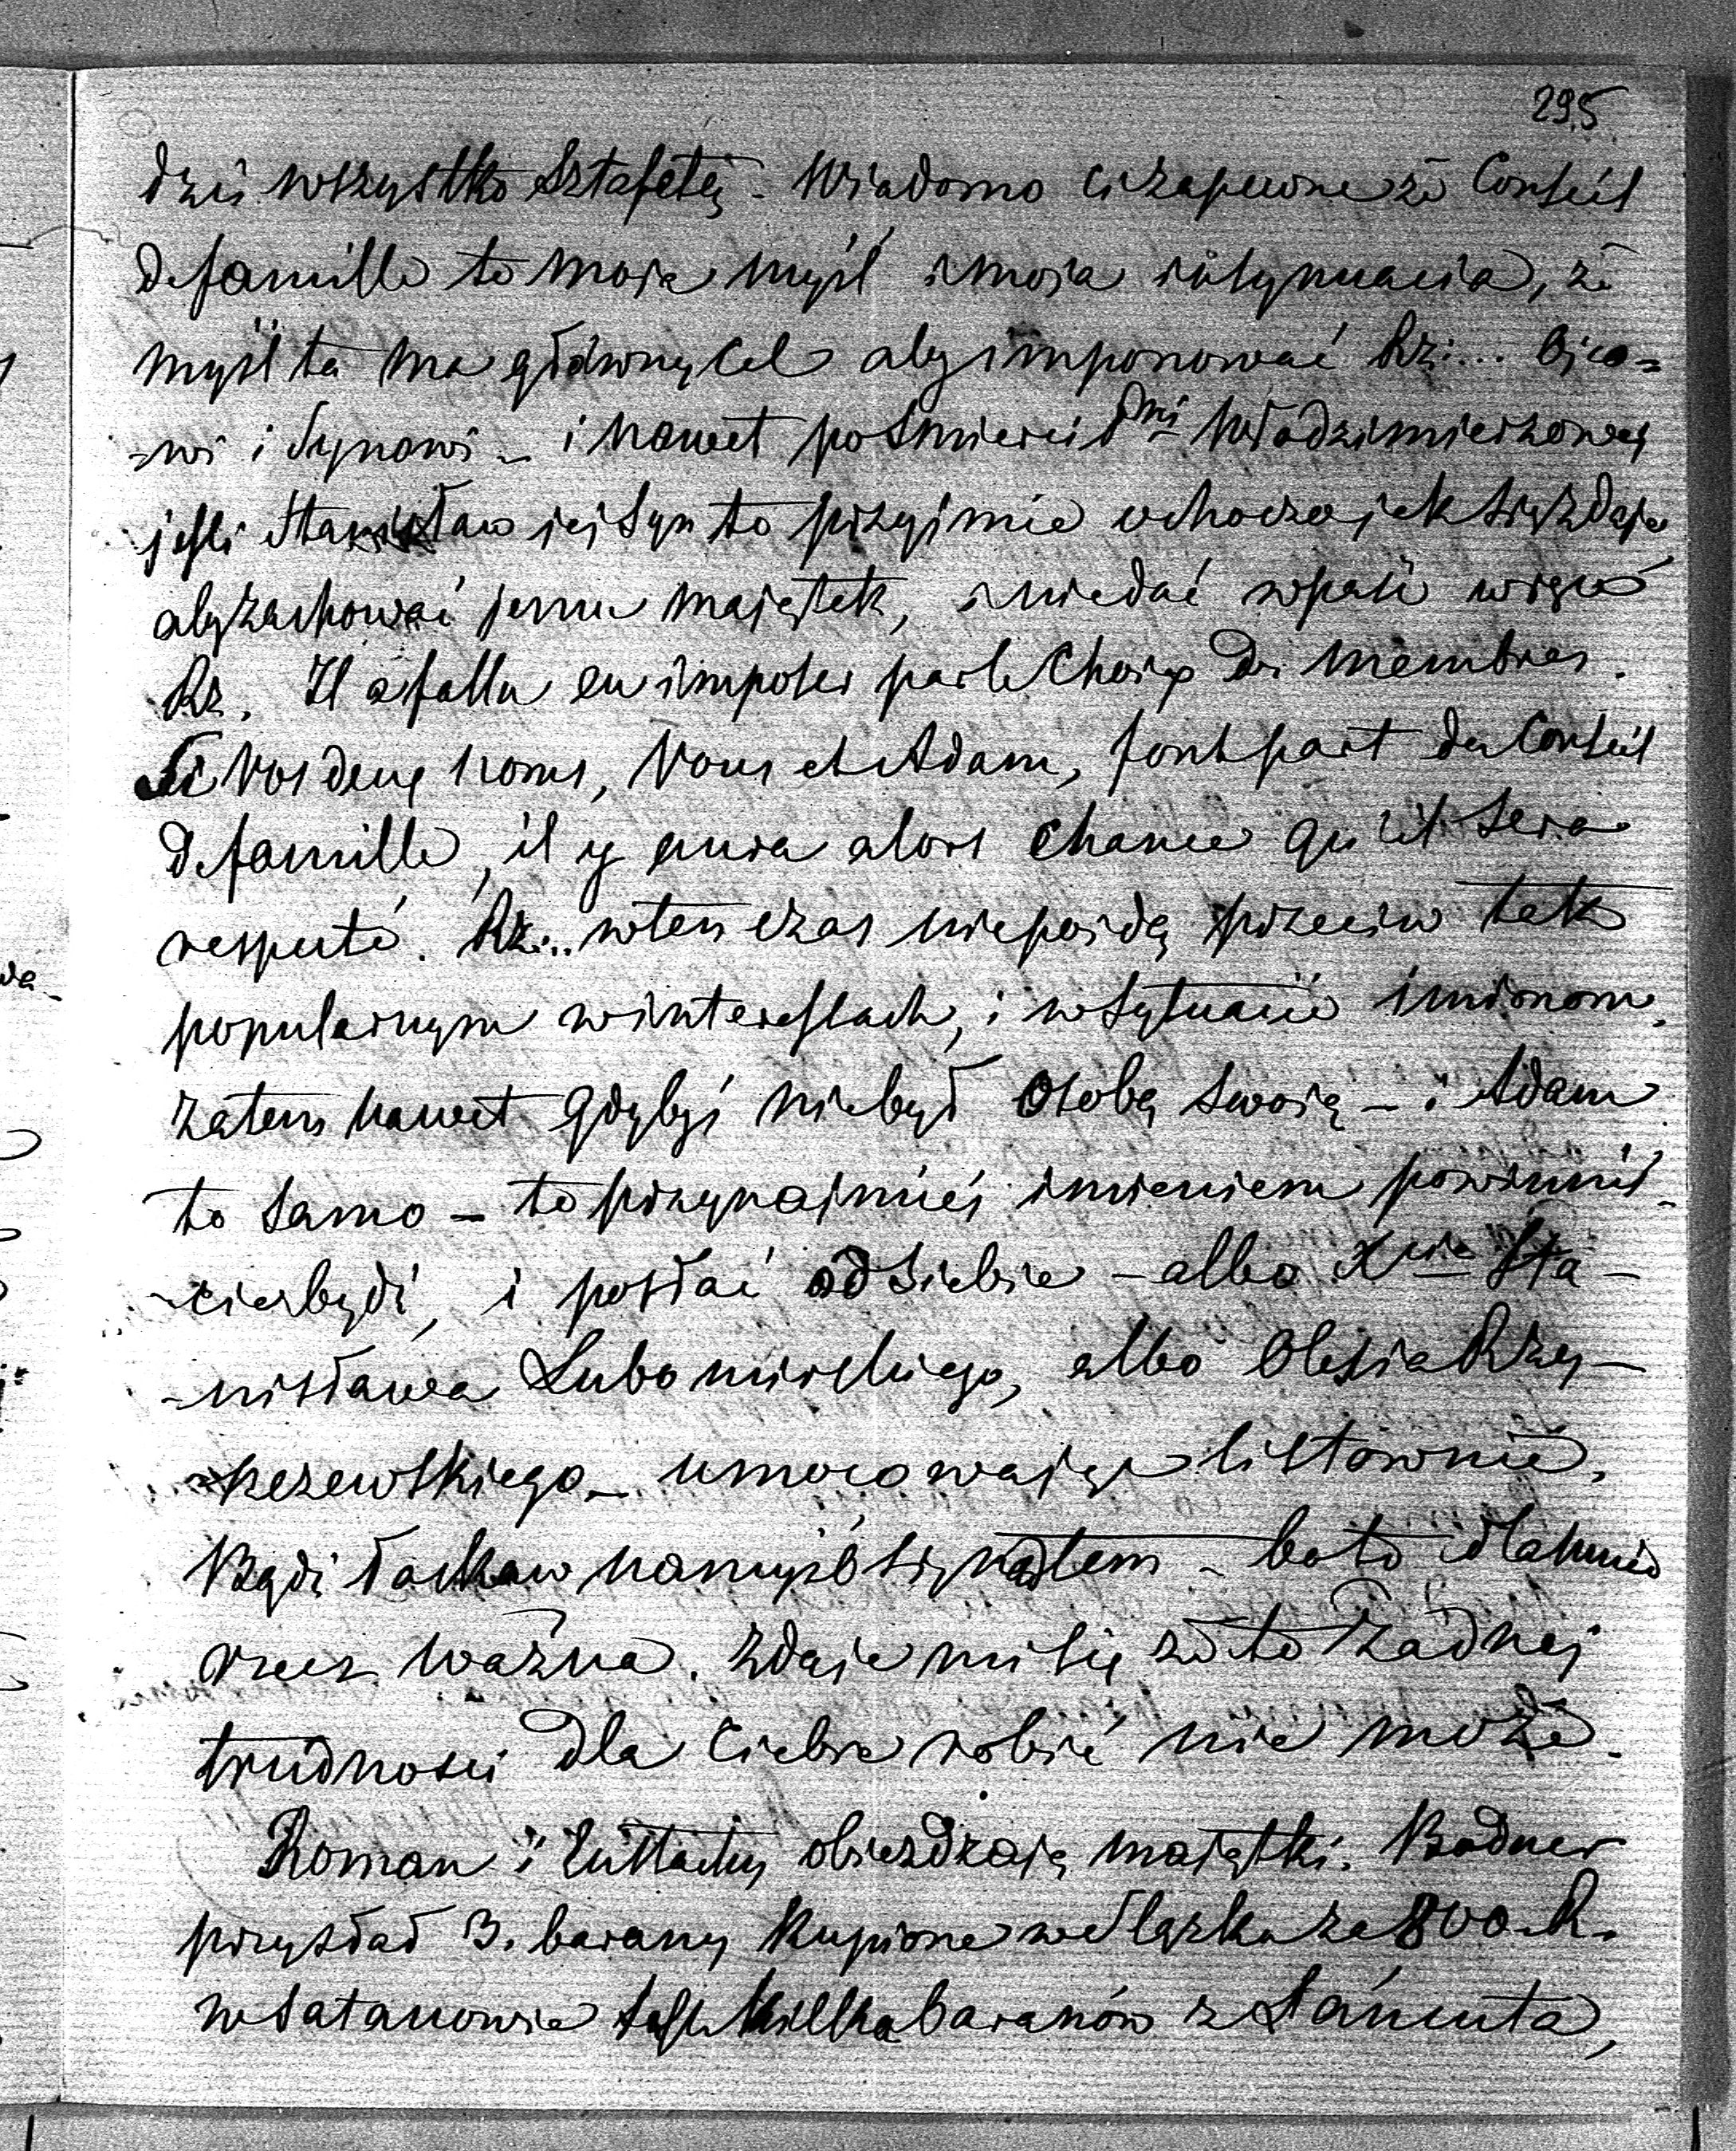 295
dziś wszystko Sztafetą. Wiadomo ci zapewne że Conseil
de famille to moja myśl i moja insynuacia, że
myśl ta ma główny cel aby imponować Rz:... Ojco=
-wi i Synowi - i nawet po śmierci Pni Włodzimierzowej
jeśli Stanisław jej Syn to przyjmie ochoczo jak się zdaje
aby zachować jemu majątek, i niedać wpaść w ręce
Rz. Il a fallu en imposer par le Choix des membres.
Si Vos deux noms, Vous et Adam, font part du Conseil
de famille, il y aura alors chance qu'il sera
respecté. Rz... wten czas niepójdą przeciw tak
popularnym w interessach, i w sytuacii imionom.
zatem nawet gdybyś niebył Osobą swoją - i Adam
to samo - to przynajmniéj imieniem powinniś-
-cie bydź, i posłać od siebie - albo Xcia Sta-
-nisława Lubomirskiego, albo Olesia Rzy-
-szczewskiego - umocowając listownie.
Bądź łaskaw namyśl się nad tem - bo to dla mnie
rzecz ważna. Zdaje mi się że to żadnej
trudności dla Ciebie robić nie może.
Roman i Eustachy obieżdżają majątki. Bodner
przysłał 3. barany kupione w Śląsku za 800 R.
w Satanowie kilka baranów z Łańcuta,